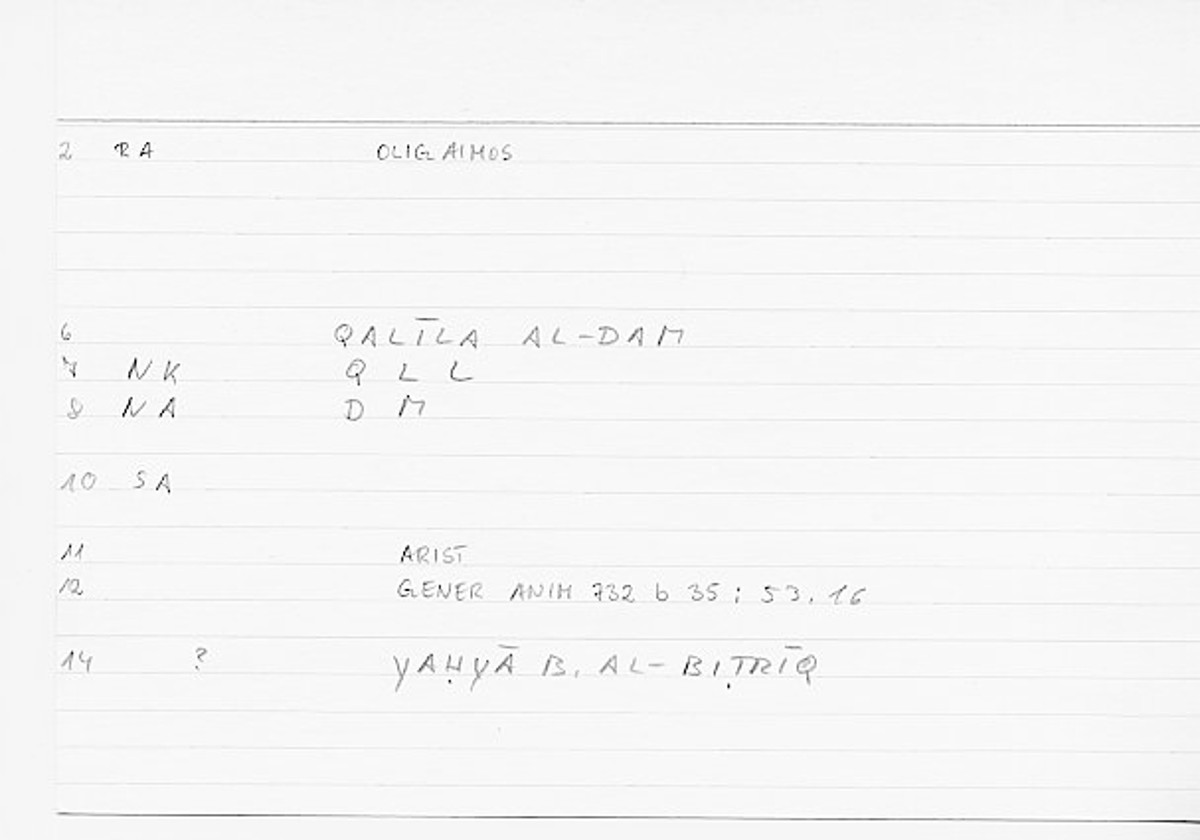 2 RA OLIGAIMOS
6 QALĪLA AL-DAM
7 NK Q L L
8 NA D M
10 SA
11 ARIST
12 GENER ANIM 732 b 35 ; 53.16
14 ? YAḤYĀ B. AL-BIṬRĪQ